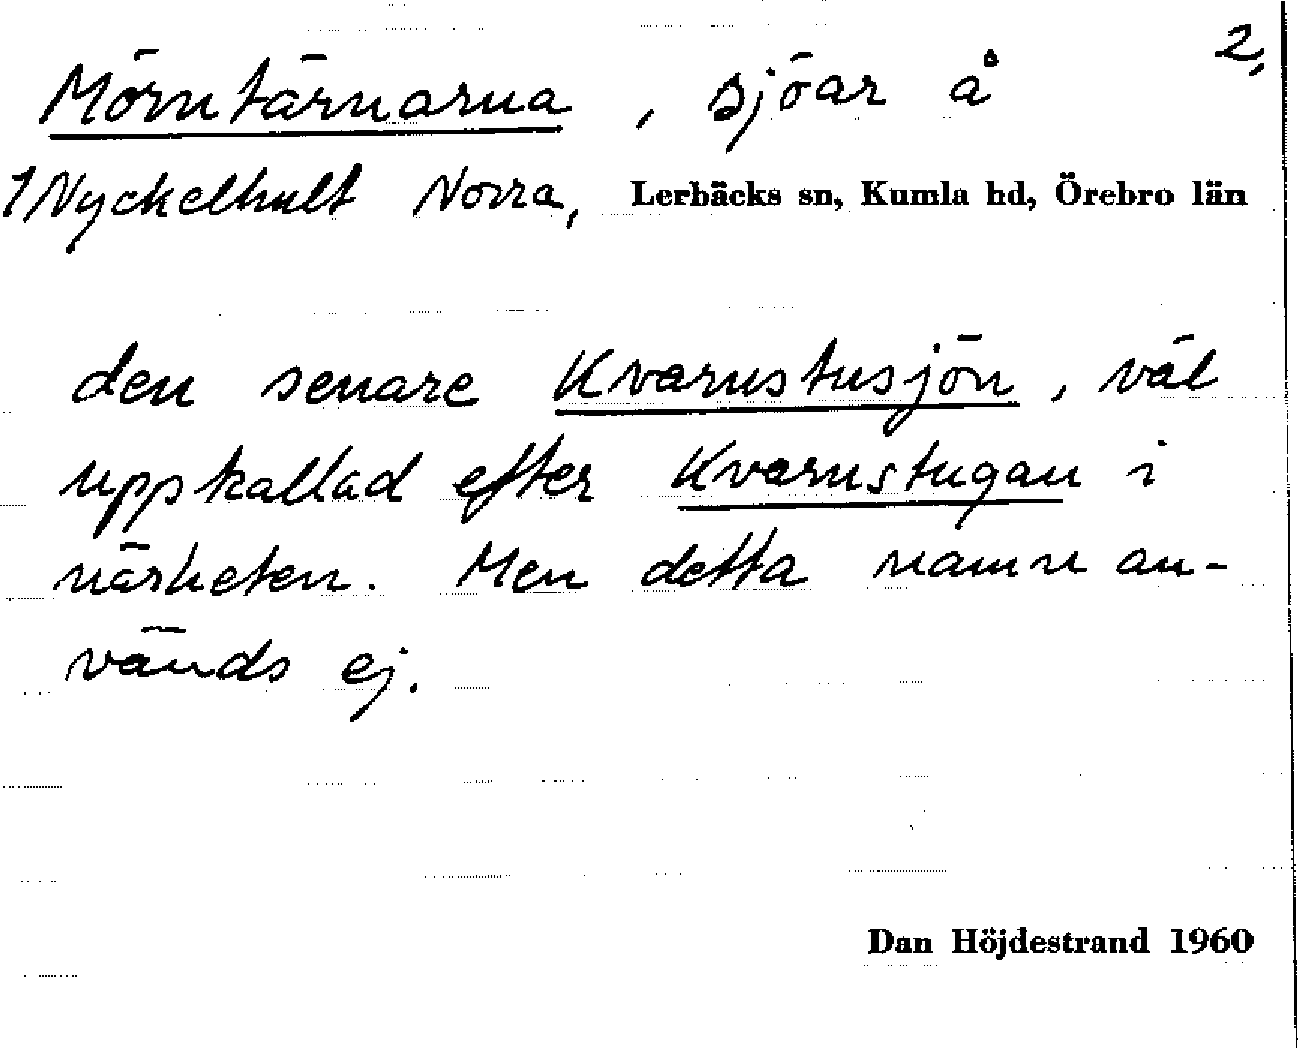 2,
Mörntärnarna, sjöar å
1/Nyckelhult Norra, Lerbäcks sn, Kumla hd, Örebro län
den senare Kvarnstusjön, väl
uppkallad efter Kvarnstugan i
närheten. Men detta namn an-
vänds ej.
Dan Höjdestrand 1960